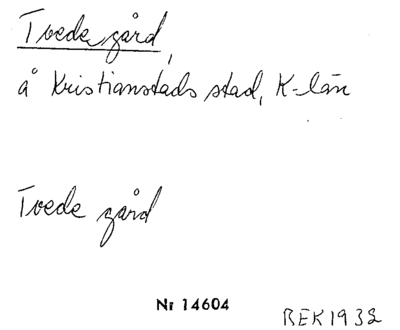 Tvede gård,
å Kristianstads stad, K-län
Tvede gård
Nr 14604
BEK1932